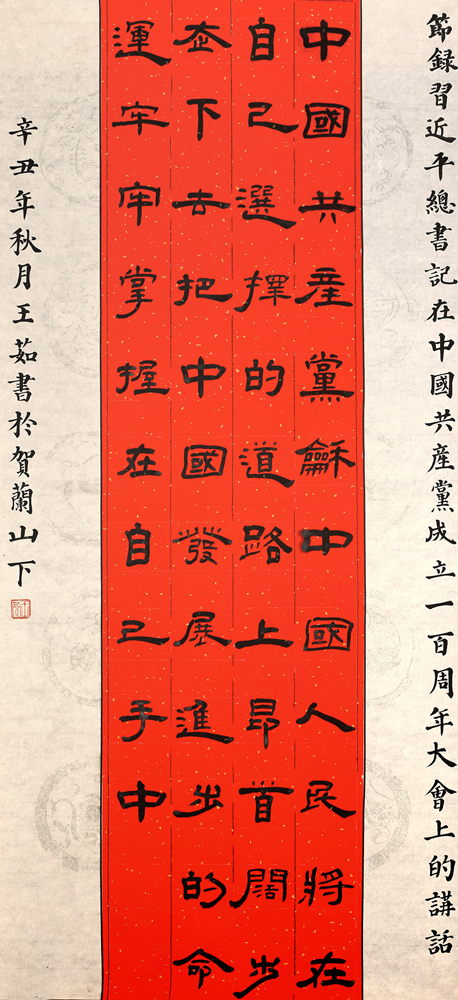 節録習近平總書記在中國共産黨成立一百周年大會上的講話
中國共産黨龢中國人民將在
自己選擇的道路上昂首闊步
走下去把中國發展進步的命
運牢牢掌握在自己手中
辛丑年秋月王茹書於賀蘭山下